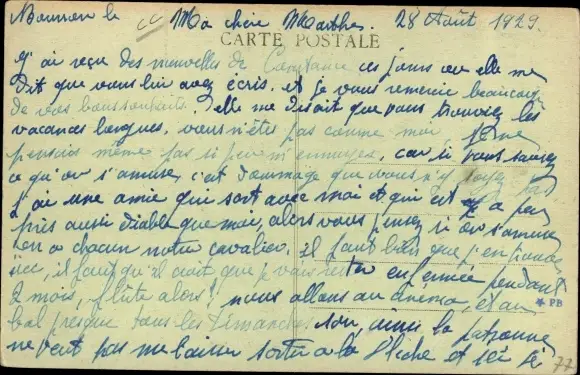 Ma chère Marthe. 28 Août 1929.
CARTE POSTALE
J'ai reçu des nouvelles de Constance ces jours elle me
dit que vous lui avez écris. et je vous remercie beaucoup
de vos bons souhaits. elle me disait que vous trouviez les
vacances longues, vous n'êtes pas comme moi je ne
pensais même pas si peu m'ennuyer, car si vous saviez
ce qu'on s'amuse, c'est dommage que vous n'y soyez pas
j'ai une amie qui sort avec moi et qui est à peu
près aussi diable que moi, alors vous pensez si on s'amuse
on a chacun notre cavalier. il faut bien que j'en profite
ici, il faut qu'il avait que je vais rester enfermée pendant
2 mois, flûte alors! nous allons au cinéma, et au
★ PB
bal presque tous les dimanches ainsi la patronne
ne veut pas me laisser sortir à la Flèche et ici je
77